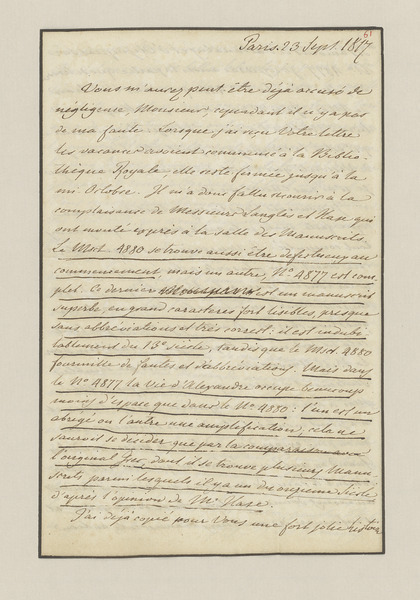 61
Paris. 23 Sept. 1817
Vous m'aurez peut-être déjà accusé de
négligence, Monsieur, cependant il n'y a pas
de ma faute. Lorsque j'ai reçu Votre lettre
les vacances avoient commencé à la Biblio-
thèque Royale, elle reste fermée jusqu'à la
mi-Octobre. Il m'a donc fallu recourir à la
complaisance de Messieurs Langlès et Hase qui
ont monté exprès à la salle des Manuscrits.
Le Msct. 4880 se trouve aussi être defectueux au
commencement, mais un autre, N.º 4877 est com-
plet. Ce dernier est un manuscrit
superbe, en grand caractères fort lisibles, presque
sans abbréviations et très correct: il est indubi-
tablement du 13e siècle, tandis que le Msct. 4880
fourmille de fautes et d'abbréviations. Mais dans
le Nº 4877 la Vie d'Alexandre occupe beaucoup
moins d'espace que dans le Nº 4880: l'un est un
abrégé ou l'autre une amplification, cela ne
sauroit se decider que par la comparaison avec
l'original Grec, dont il se trouve plusieurs Manu-
scrits parmi lesquels il y a un du onzieme Siècle
d'après l'opinion de Mr. Hase.
J'ai déjà copié pour Vous une fort jolie histoire